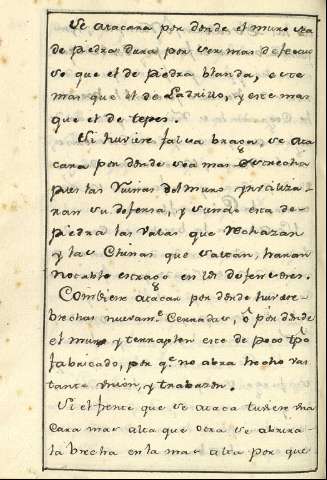 Se atacara por donde el muro sea
de piedra dura por ser mas defectuo
so que el de piedra blanda, este
mas que el de Ladrillo, y este mas
que el de tepes.
Si huviere falsa braga, se ata
cara por donde sea mas estrecha
pues las Ruinas del muro inutiliza
ran su defensa, y siendo esta de
piedra las valas que rechazan
y las Chinas que saltan, haran
notable estrago en los defensores.
Combiene atacar por donde huviere
brechas nuevamte. Cerradas, ô por donde
el muro y terraplen este de poco tpô
fabricado, por q. no abra hecho vas
tante union, y trabazon.
Si el frente que se ataca tuviere una
Cara mas alta que otra se abrira
la brecha en la mas alta por que